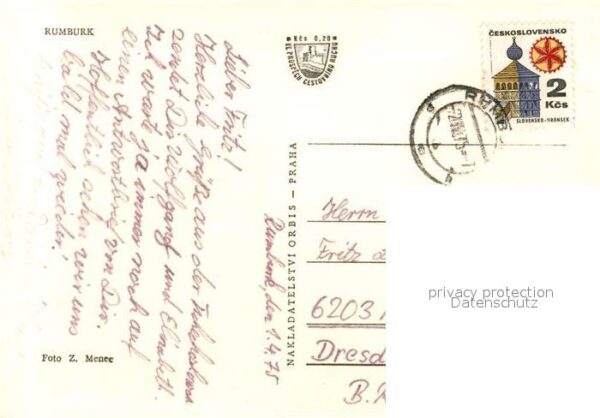 RUMBURK
Lieber Fritz!
Herzliche Grüße aus der
sendet Dir Wolfgang und Elisabeth.
Ich warte ja immer noch auf
einen Antwortbrief von Dir.
Hoffentlich sehen wir uns
bald mal wieder!
Foto Z. Menec
Kčs 0,20
VE PROSPĚCH CESTOVNÍHO RUCHU
NAKLADATELSTVÍ ORBIS - PRAHA
Rumburk, den 1.4.75
ČESKOSLOVENSKO
2
Kčs
SLOVENSKO-HRONSEK
RUMB
Herrn
Fritz
6203
Dresd
B.
privacy protection
Datenschutz